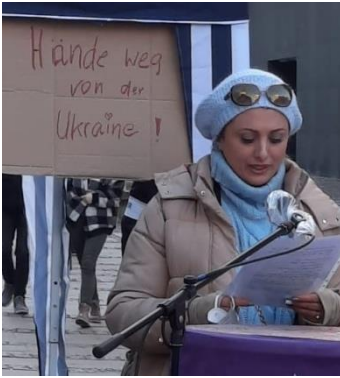 Hände weg
von der
Ukraine!